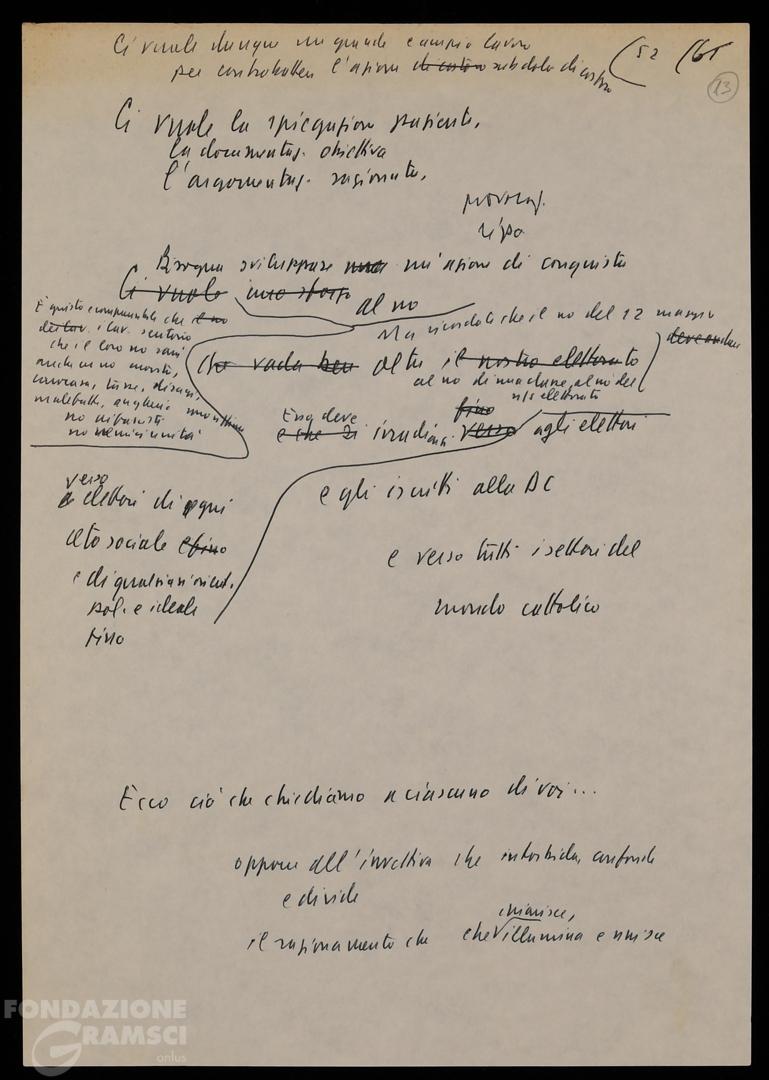 Ci vuole dunque un grande e ampio lavoro
per controbattere l'azione di costoro subdola di costoro
(52
(65
13
Ci vuole la spiegazione paziente,
la documentaz. obiettiva
l'argomentaz. ragionata,
provocaz.
Bisogna sviluppare una un'azione di conquista
Ci vuole uno sforzo
al no
Ma ricordate che il no del 12 maggio
deve andare
È questo e comprensibile che il no
che il loro no sarà
anche un no
carovita, tasse, disagi,
Che vada ben oltre il nostro elettorato
al no di una classe, al no del
n/s elettorato
Essa deve
fino
e che si irradi verso agli elettori
verso
elettori di ogni
ceto sociale e fino
e di qualsiasi orient.
pol. e ideale
fino
e gli iscritti alla DC
e verso tutti i settori del
mondo cattolico
Ecco ciò che chiediamo a ciascuno di voi...
opporre all'invettiva che intorbida, confonde
e divide
il ragionamento che che chiarisce,
illumina e unisce
FONDAZIONE
GRAMSCI
onlus